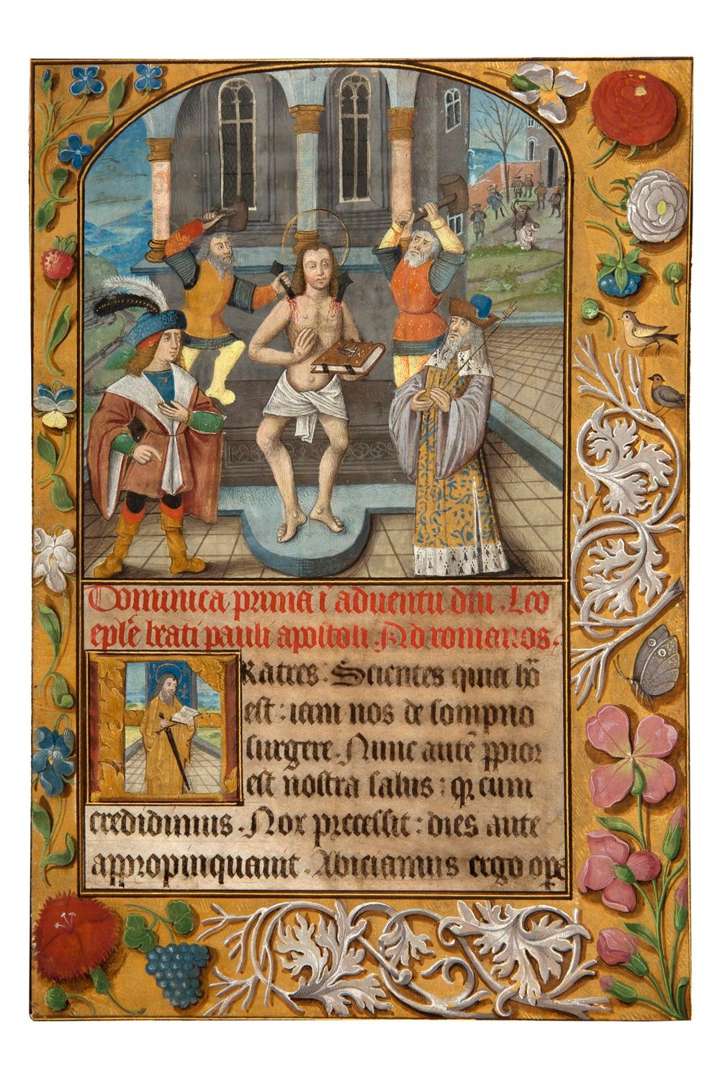 Dominica prima ī aduentu dni. Lco
eplē beati pauli apostoli. Ad romanos.
FRatres: Scientes quia ho
est: iam nos de sompno
surgere. Nunc autē ppior
est nostra salus: q̄ cum
credidimus. Nox precessit: dies aute
appropinquauit. Abiciamus ergo opa